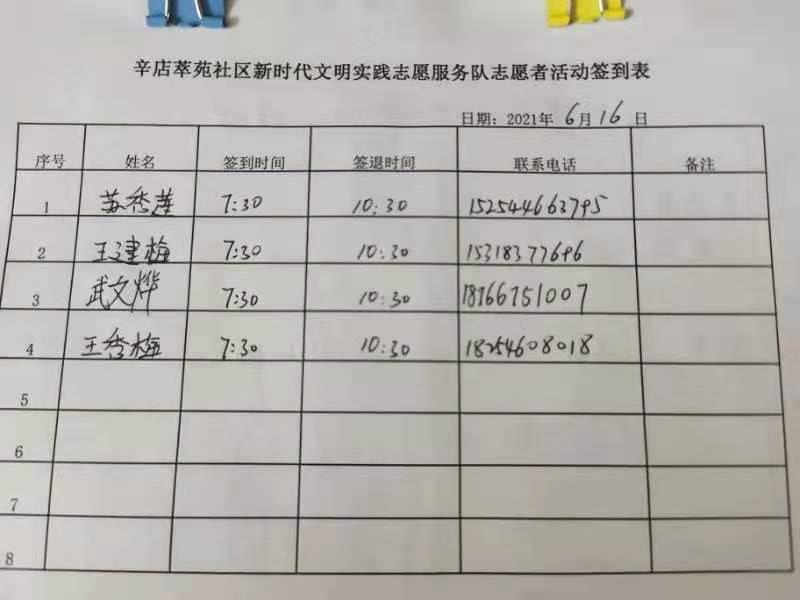 辛店萃苑社区新时代文明实践志愿服务队志愿者活动签到表
日期：2021年 6月16日
序号 姓名 签到时间 签退时间 联系电话 备注
1 苏秀莲 7:30 10:30 152544663795
2 王建梅 7:30 10:30 15318377696
3 武文烨 7:30 10:30 18766751007
4 王秀梅 7:30 10:30 18254608018
5
6
7
8